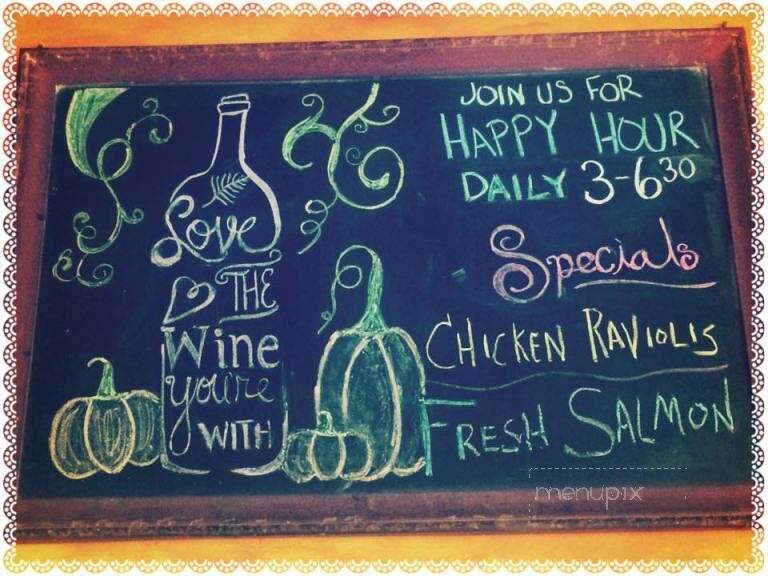 Love
THE
Wine
you're
WITH
JOIN US FOR
HAPPY HOUR
DAILY 3-6 30
Specials
CHICKEN RAVIOLIS
FRESH SALMON
menupix